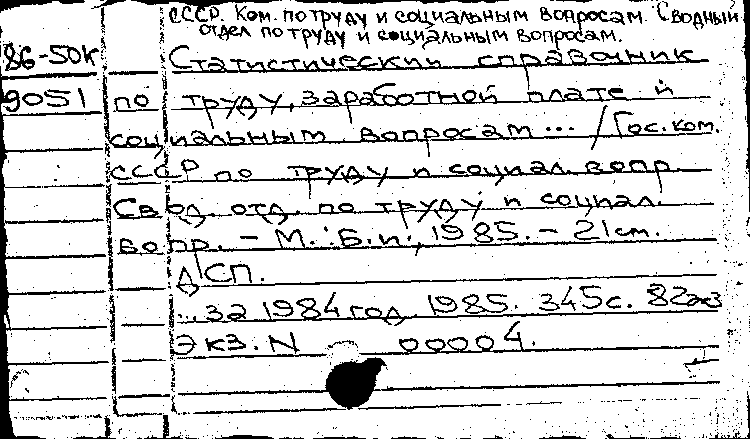 СССР. Ком. по труду и социальным вопросам. Сводный
отдел по труду и социальным вопросам.
86-50к Статистический справочник
9051 по труду, заработной плате и
социальным вопросам ... / Гос. ком.
СССР по труду и социал. вопр.
Свод. отд. по труду и социал.
вопр. – М. : Б.и., 1985. – 21 см.
ДСП.
... за 1984 год. 1985. 345 с. 82 экз
Экз. N 00004.